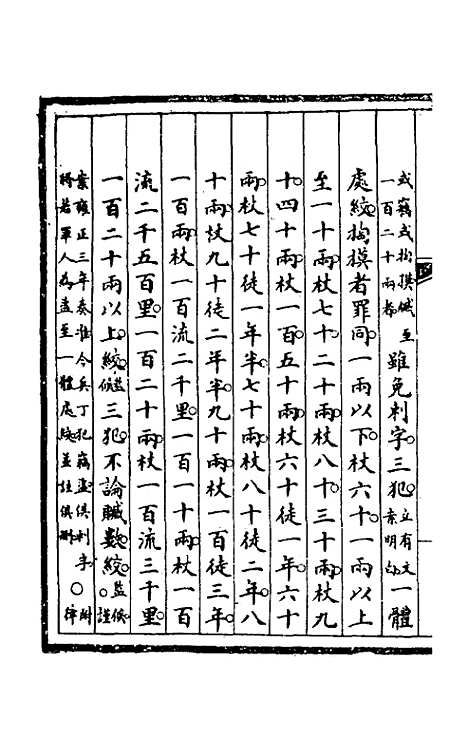 或竊或掏摸贓至一百二十兩者雖免刺字三犯立有文案明白一體
處絞掏摸者罪同一兩以下杖六十一兩以上
至一十兩杖七十二十兩杖八十三十兩杖九
十四十兩杖一百五十兩杖六十徒一年六十
兩杖七十徒一年半七十兩杖八十徒二年八
十兩杖九十徒二年半九十兩杖一百徒三年
一百兩杖一百流二千里一百一十兩杖一百
流二千五百里一百二十兩杖一百流三千里
一百二十兩以上絞監候三犯不論贓數絞監候○謹
案雍正三年奏准今兵丁犯竊盜俱刺字○附律
將若軍人為盜至一體處絞並註俱刪